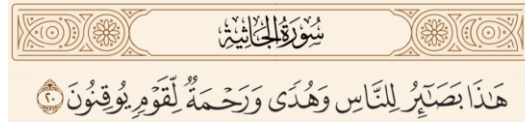 سُورَةُ الجَاثِيَةِ
هَٰذَا بَصَٰٓئِرُ لِلنَّاسِ وَهُدًى وَرَحۡمَةٞ لِّقَوۡمٖ يُوقِنُونَ ٢٠